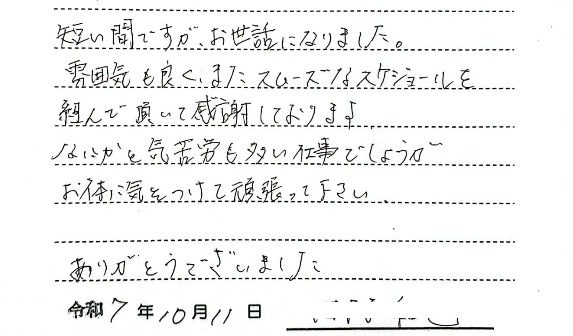 短い間ですが、お世話になりました。
雰囲気も良く、またスムーズなスケジュールを
組んで頂いて感謝しております
なにかと気苦労も多い仕事でしょうが
お体に気をつけて頑張って下さい
ありがとうございました
令和7年10月11日